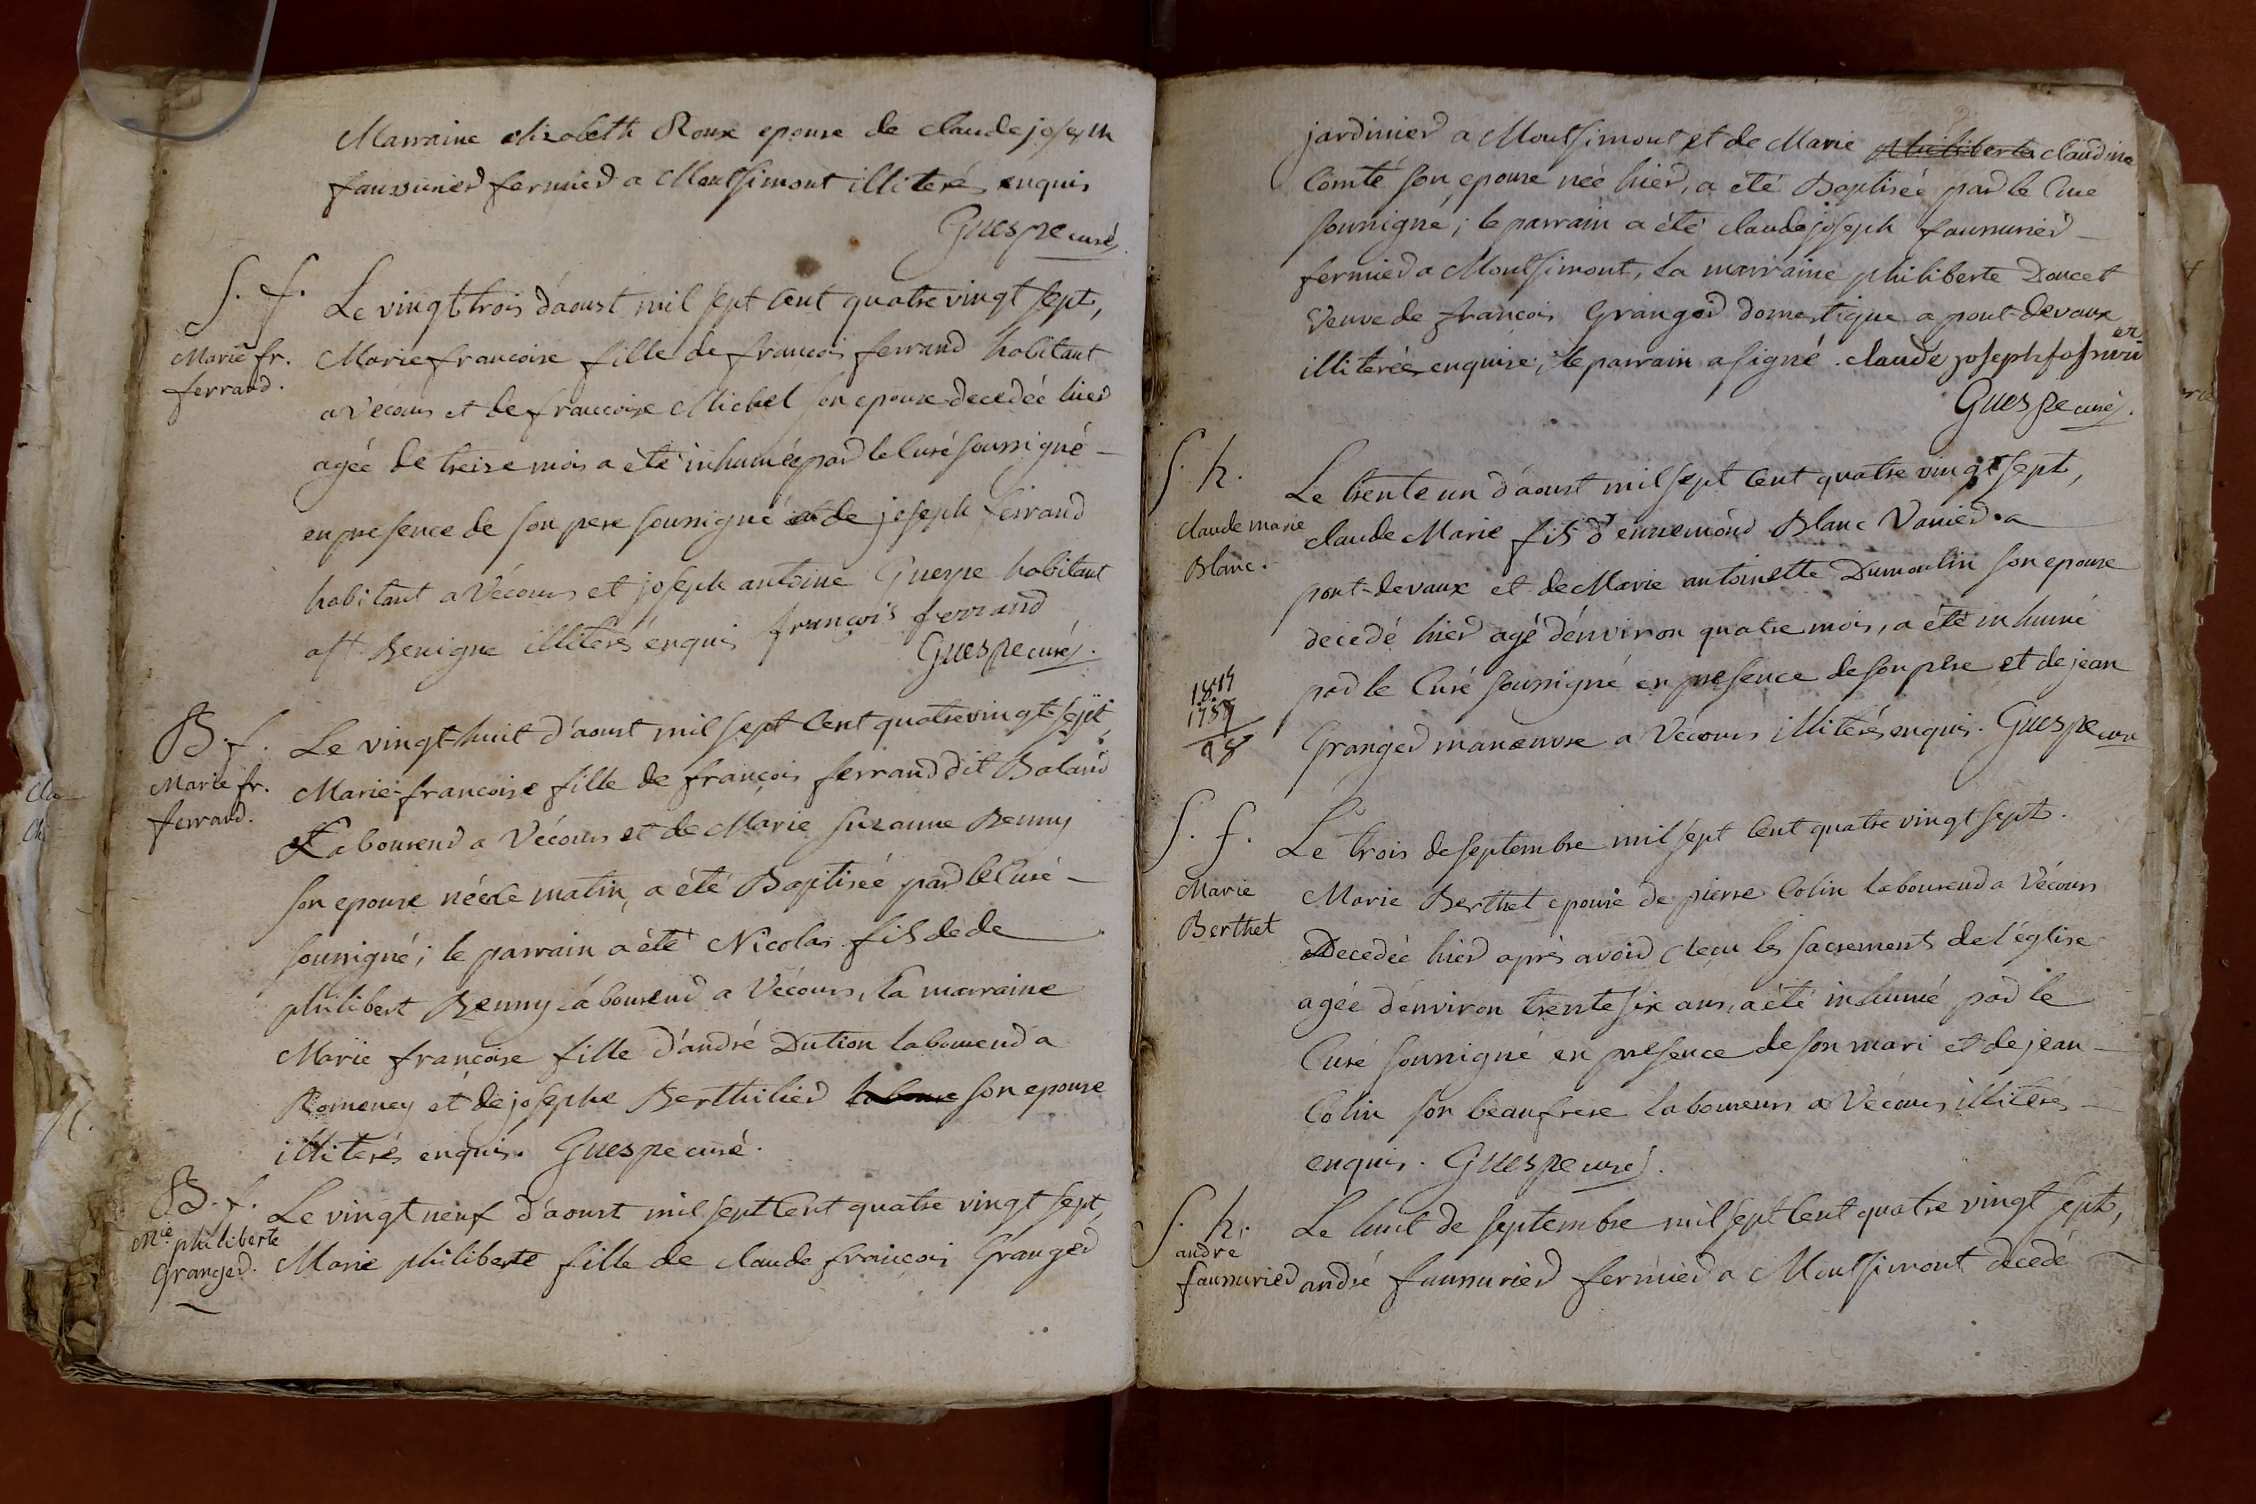 Marraine elizabeth Roux epouse de claude joseph
faussurier fermier a Montsimont illiterés enquis
Guespe curé
S. f.
Marie fr.
ferrand.
Le vingt trois d'aoust mil sept cent quatre vingt sept,
Marie francoise fille de françois ferrand habitant
a Vécours et de francoise Michel son epouse decedée hier
agée de treize mois a été inhumée par le Curé soussigné
en presence de son pere soussigné et de joseph ferrand
habitant a Vécours et joseph antoine Guespe habitant
a st Benigne illiterés enquis françois ferrand
Guespe curé.
B. f.
Marie fr.
ferrand.
Le vingt-huit d'aoust mil sept Cent quatre vingt-sept,
Marie-francoise fille de françois ferrand dit Baland
Laboureur a Vécours et de Marie Suzanne Benny
son epouse née le matin, a été Baptisée par le Curé
soussigné; le parrain a été Nicolas fils de de
philibert Benny laboureur a Vécours, la marraine
Marie françoise fille d'andré Dution laboureur a
Romeney et de josephe Berthilier laboure son epouse
illiterés enquis. Guespe curé.
B. f.
Mie philiberte
Granger.
Le vingt neuf d'aoust mil sept Cent quatre vingt sept,
Marie philiberte fille de claude françois Granger
jardinier a Montsimont et de Marie philiberte claudine
Comte son epouse née hier, a été Baptisée par le Curé
soussigné; le parrain a été claude joseph faussurier
fermier a Montsimont, la marraine philiberte Doucet
Veuve de françois Granger domestique a pont-devaux
illiterée enquise; le parrain a signé. claude joseph fosurier
Guespe curé.
S. h.
claude marie
Blanc.
Le trente un d'aoust mil sept Cent quatre vingt sept,
claude Marie fils d'ennemond Blanc Vanier a
pont-devaux et de Marie antoinette Dumoulin son epouse
decedé hier agé d'environ quatre mois, a été inhumé
par le Curé soussigné en presence de son pere et de jean
Granger manœuvre a Vécours illiterés enquis. Guespe curé
S. f.
Marie
Berthet
Le trois de septembre mil sept Cent quatre vingt sept.
Marie Berthet epouse de pierre Colin laboureur a Vécours
Decedée hier après avoir reçu les sacrements de l'église
agée d'environ trente six ans, a été inhumé par le
Curé soussigné en presence de son mari et de jean
Colin son beaufrere laboureurs a Vécours illiterés
enquis. Guespe curé.
S. h.
andré
faussurier
Le huit de septembre mil sept Cent quatre vingt sept,
andré faussurier fermier a Montsimont decedé